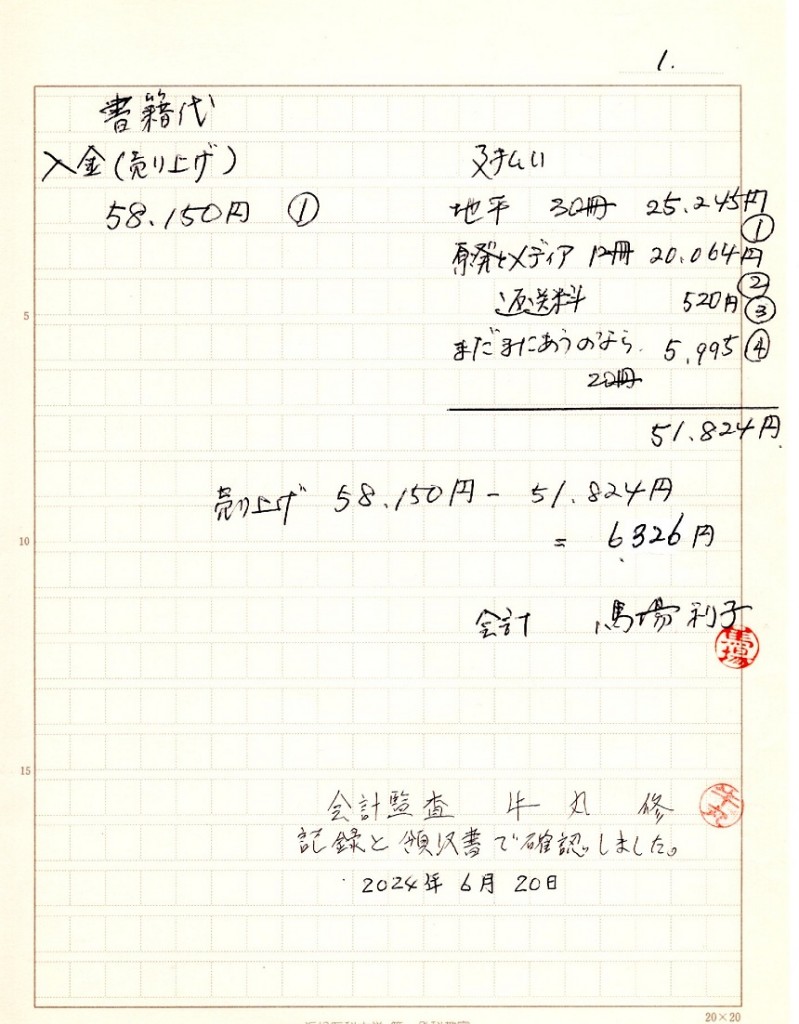 1.
書籍代
入金(売り上げ)
58.150円 ①
支払い
地平 30冊 25.245円 ①
原発とメディア 12冊 20.064円 ②
返送料 520円 ③
まだまにあうのなら 5.995 ④
20冊
51.824円
売り上げ 58.150円 - 51.824円
= 6.326円
会計 馬場利子
馬場
会計監査 牛丸 修
牛丸
記録と領収書で確認しました。
2024年6月20日
5
10
15
20×20